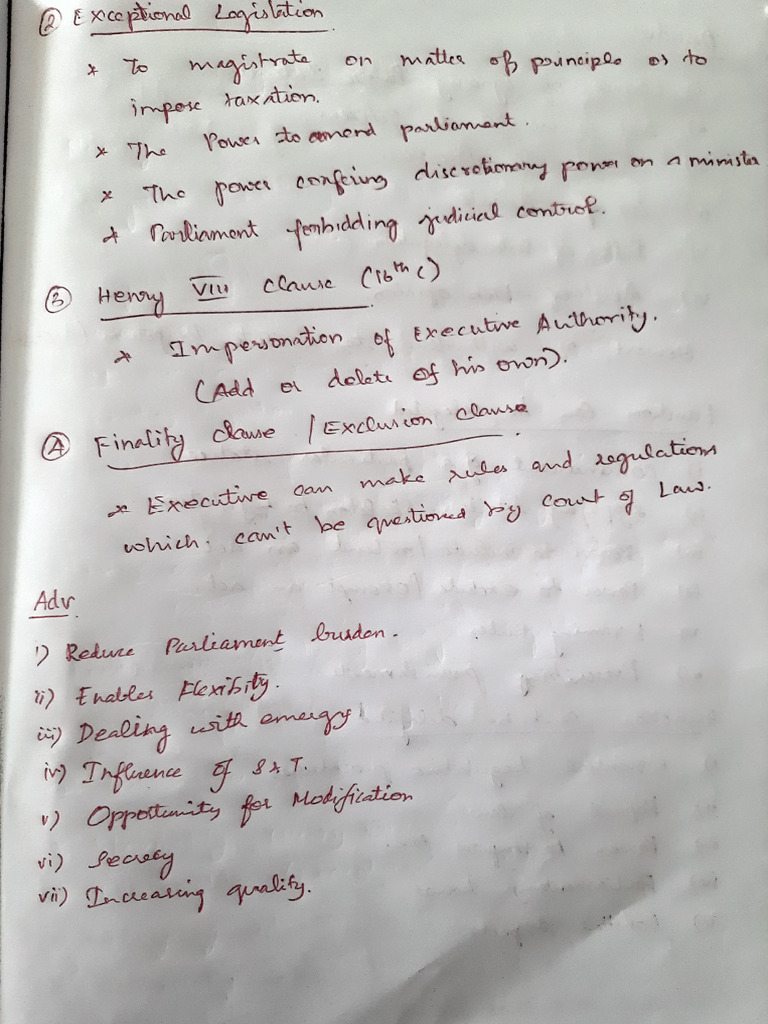 ② Exceptional Legislation
* To magistrate on matter of principle or to
impose taxation.
* The Power to amend parliament.
* The power confering discretionary power on a minister
* Parliament forbidding judicial control.
③ Henry VIII clause (16th c)
* Impersonation of Executive Authority.
(Add or delete of his own).
④ Finality clause / Exclusion clause
* Executive can make rules and regulations
which can't be questioned by court of Law.
Adv
i) Reduce Parliament burden.
ii) Enables Flexibity.
iii) Dealing with emergy
iv) Influence of S & T.
v) Opportunity for Modification
vi) Secrecy
vii) Increasing quality.